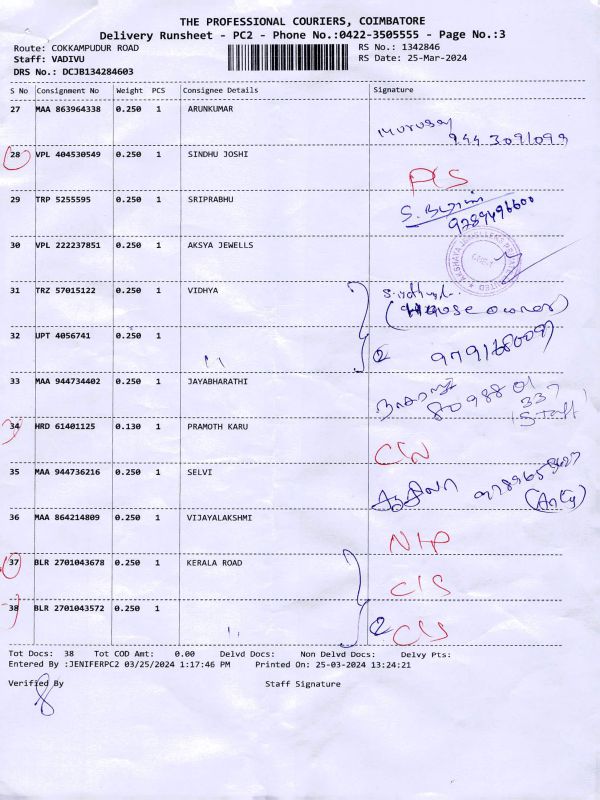 THE PROFESSIONAL COURIERS, COIMBATORE
Delivery Runsheet - PC2 - Phone No.:0422-3505555 - Page No.:3
Route: COKKAMPUDUR ROAD RS No.: 1342846
Staff: VADIVU RS Date: 25-Mar-2024
DRS No.: DCJB134284603
S No Consignment No Weight PCS Consignee Details Signature
27 MAA 863964338 0.250 1 ARUNKUMAR
28 VPL 404530549 0.250 1 SINDHU JOSHI
29 TRP 5255595 0.250 1 SRIPRABHU
9289496600
30 VPL 222237851 0.250 1 AKSYA JEWELLS
31 TRZ 57015122 0.250 1 VIDHYA
(House owner)
32 UPT 4056741 0.250 1
33 MAA 944734402 0.250 1 JAYABHARATHI
80988 01
337
(Staff)
34 HRD 61401125 0.130 1 PRAMOTH KARU
35 MAA 944736216 0.250 1 SELVI
36 MAA 864214809 0.250 1 VIJAYALAKSHMI
37 BLR 2701043678 0.250 1 KERALA ROAD
38 BLR 2701043572 0.250 1
Tot Docs: 38 Tot COD Amt: 0.00 Delvd Docs: Non Delvd Docs: Delvy Pts:
Entered By :JENIFERPC2 03/25/2024 1:17:46 PM Printed On: 25-03-2024 13:24:21
Verified By Staff Signature